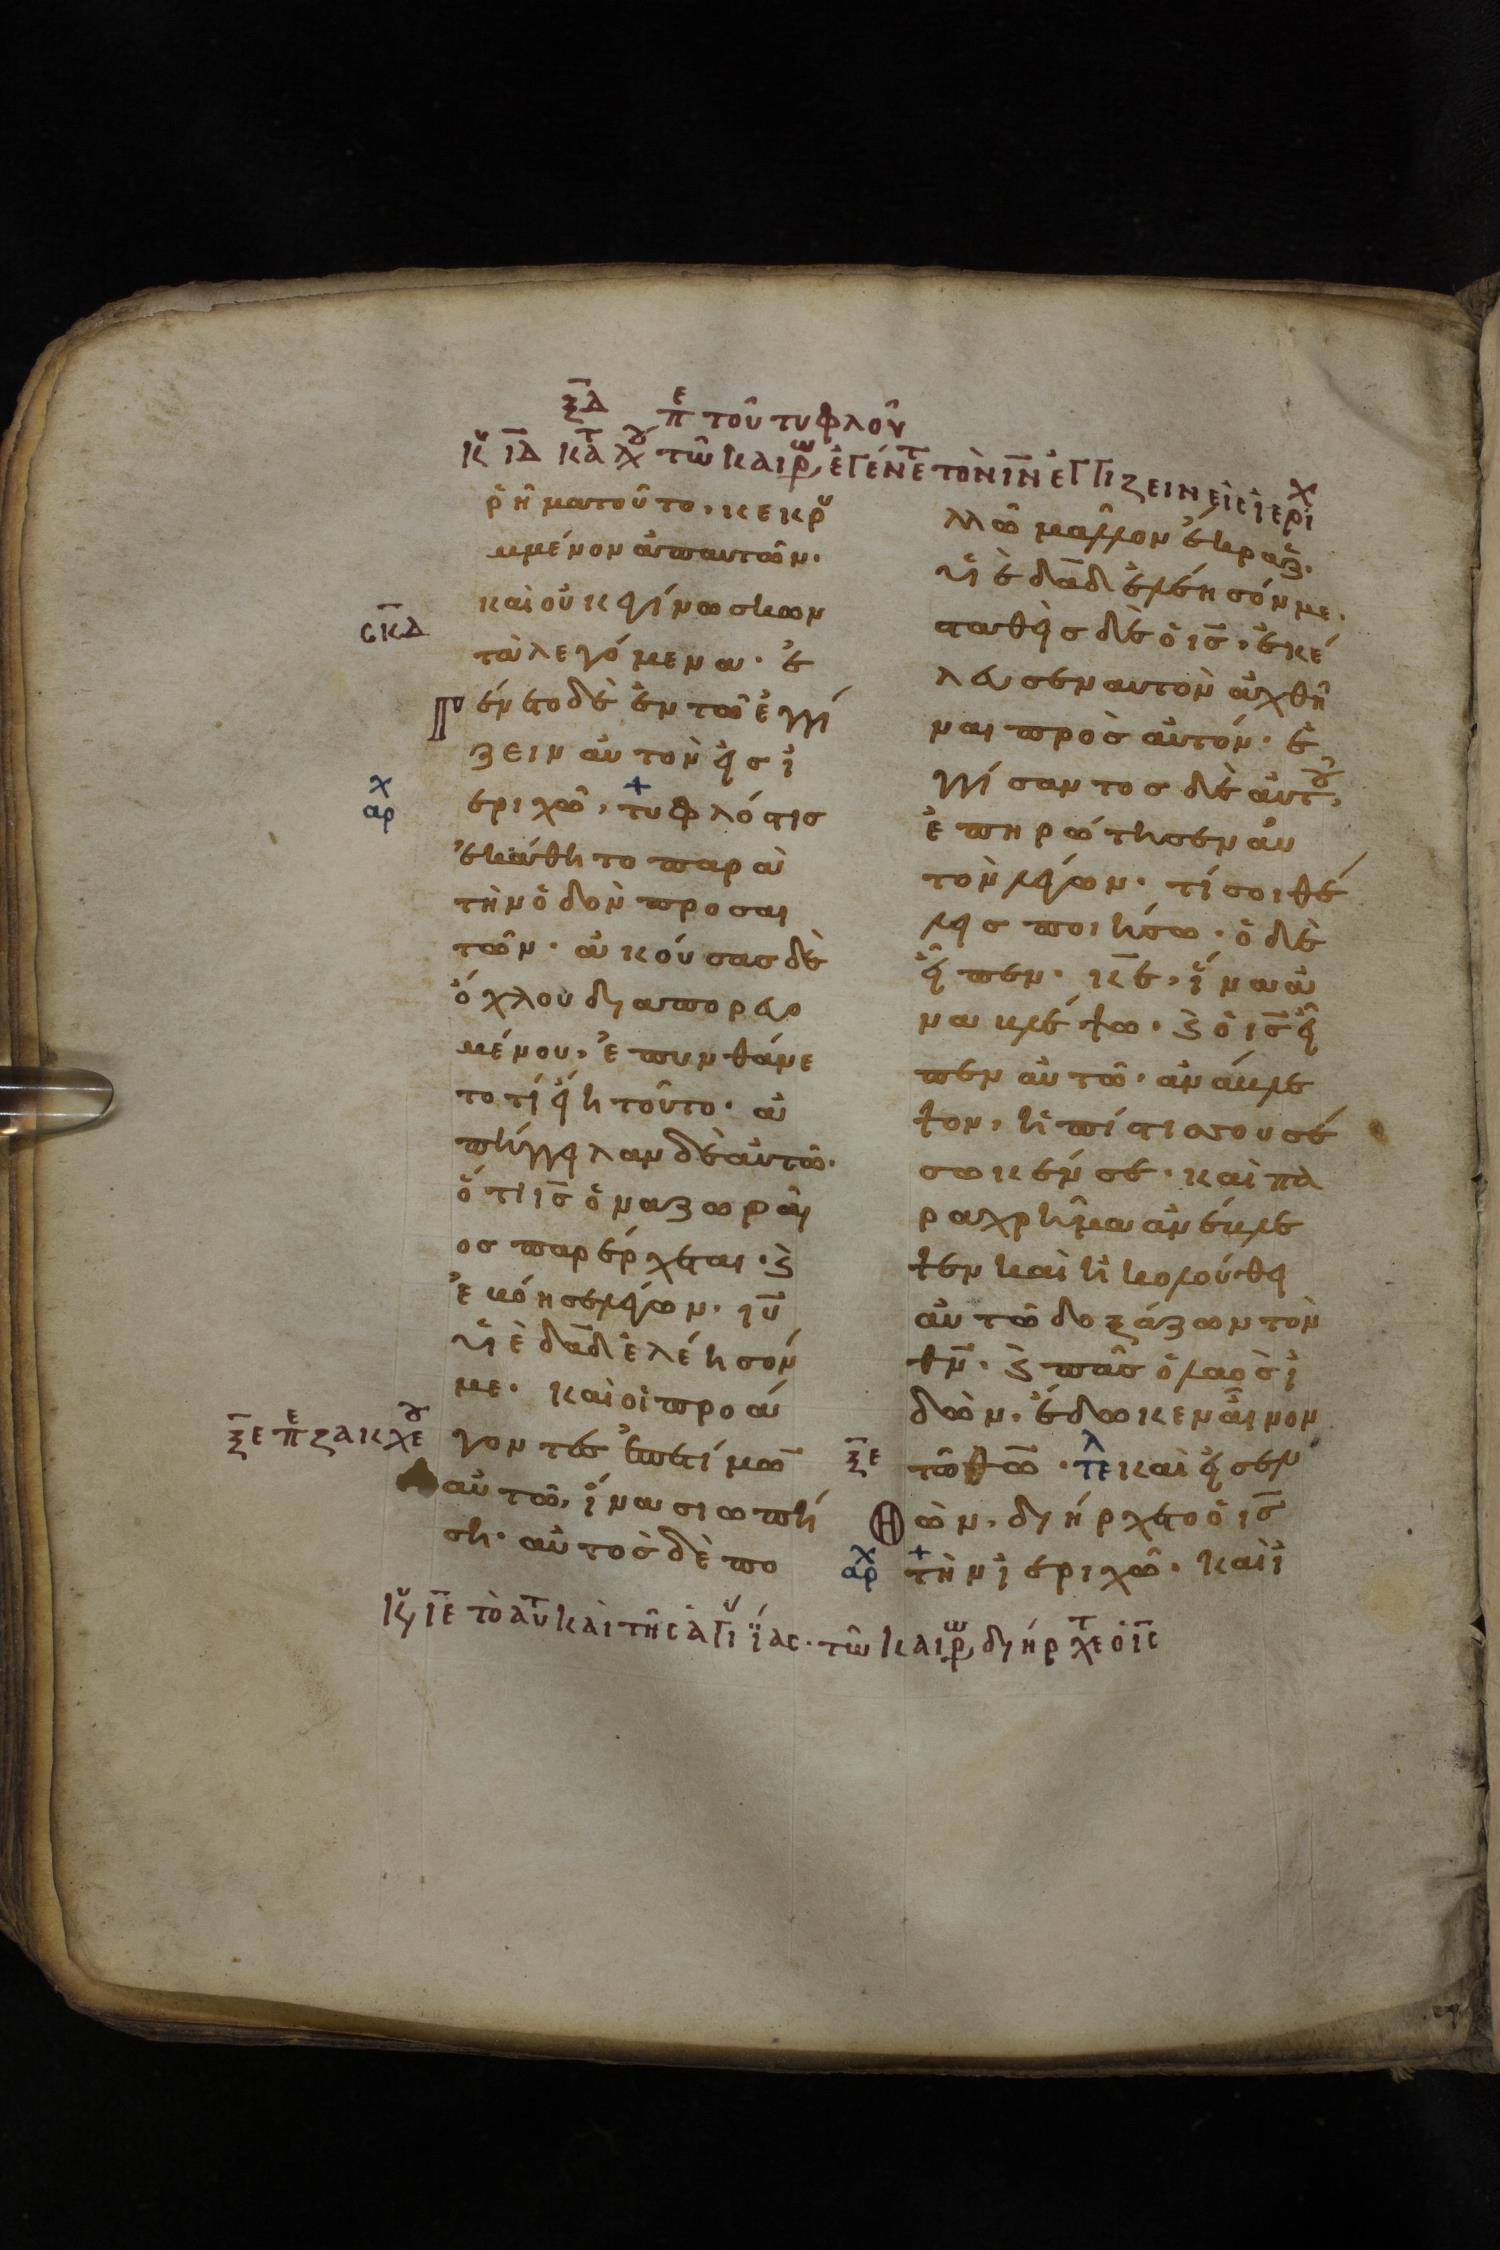 ξ̅δ̅ πε τοῦ τυφλοῦ
Κυ ι̅δ̅ κατ λου τῶ καιρω ἐγένετ τὸν ι̅ν̅ ἐγγίζειν εἰς ἱεριχ
ῥῆμα τοῦτο, κεκρυ
μμένον ἀπαυτῶν·
καὶ οὐκ ἐγίνωσκων
σ̅κ̅δ̅
τὰ λεγόμενα· ἐ
γένετο δὲ ἐν τῶ ἐγγί
ζειν αὐτὸν εἰσ ἱ
αρχ
εριχῶ, + τυφλόστισ
ἐκάθητο παρὰ
τὴν ὁδὸν προσαι
τῶν· ἀκούσασ δὲ
ὄχλου διαπορευο
μένου, ἐπυνθάνε
το τί εἴη τοῦτο· ἀ
πήγγειλαν δὲ αὐτῶ·
ὅτι ι̅σ̅ ὁ ναζωραῖ
οσ παρέρχεται· καὶ
ἐβόησε λέγων· ι̅υ̅
υἱὲ δα̅δ̅ ἐλέησόν
με· καὶ οἱ προά
ξ̅ε̅ πε ζακχεου
γοντεσ ἐπετίμω̅
αὐτῶ, ἵνα σιωπή
ση· αὐτὸσ δὲ πο
λλῶ μᾶλλον ἔκραζ·
υἱὲ δα̅δ̅ ἐλέησόν με·
σταθεὶσ δὲ ὁ ι̅σ̅, ἐκέ
λευσεν αυτὸν ἀχθῆ
ναι πρὸσ αὐτόν· ἐ
γγίσαντοσ δὲ αὐτου,
ἐπηρώτησεν αὐ
τὸν λέγων· τί σοι θέ
λεισ ποιήσω· ὁ δὲ
εἶπεν· κ̅ε̅, ἵνα ἀ
ναβλέψω· καὶ ὁ ι̅σ̅ εἶ
πεν αὐτῶ· ἀνάβλε
ψον, ἡ πίστισ σου σέ
σωκέν σε· καὶ πα
ραχρῆμα ἀνέβλε
ψεν καὶ ἠκολούθει
αὐτῶ δοξάζων τὸν
θ̅ν̅· καὶ πᾶσ ὁ λαὸσ ἰ
δὼν, ἔδωκεν αἶνον
ξ̅ε̅
τῶ θ̅ω̅ · τελ καὶ εἰσελ
θὼν, διήρχετο ὁ ι̅σ̅
αρχ
+ τὴν ἱεριχῶ· καὶ ἰ
Κυ ι̅ε̅ τὸ αυτ καὶ τῆς ἁγί
τῶ καιρω διήρχετ ὁ ι̅ς̅